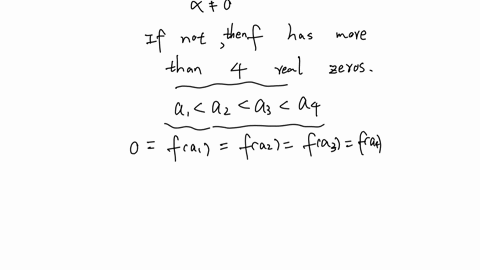 α ≠ 0
If not, then f has more
than 4 real zeros.
a₁ < a₂ < a₃ < a₄
0 = f(a₁) = f(a₂) = f(a₃) = f(a₄)